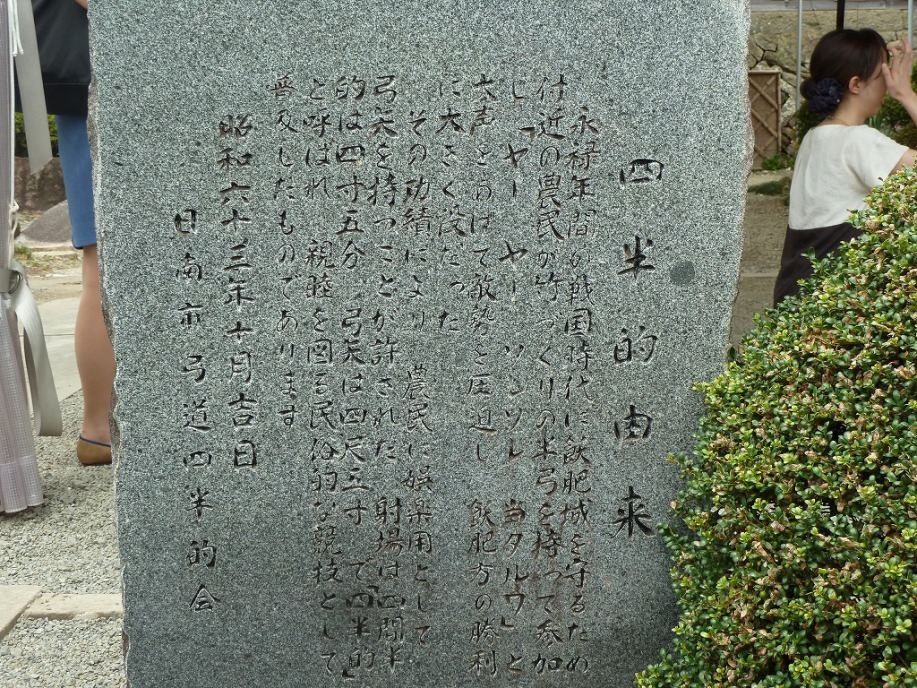 四半的由来
永禄年間の戦国時代に飫肥城を守るため
付近の農民が竹づくりの半弓を持って参加
し「ヤー ヤー ソルソレ 当タルワ」と
大声をあげて敵勢を圧迫し 飫肥方の勝利
に大きく役だった
その功績により 農民に娯楽用として
弓矢を持つことが許された 射場は四間半
的は四寸五分 弓矢は四尺五寸で「四半的」
と呼ばれ 親睦を図る民俗的な競技として
普及したものであります
昭和六十三年十月吉日
日南市弓道四半的会